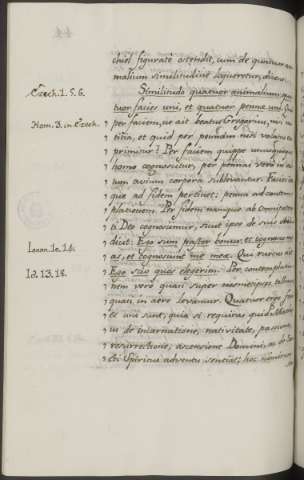 chiel figurate ostendit, cum de quatuor ani-
malium similitudine loqueretur, dicens.
Ezech. 1. 5. 6.
Similitudo quatuor animalium, qua-
tuor facies uni, et quatuor pennæ uni. Quid
Hom. 3. in Ezech.
per faciem, ut ait beatus Gregorius, nisi no-
titia, et quid per pennam nisi volatus ex-
primitur? Per faciem quippe unusquisque
homo cognoscitur, per pennas vero in al-
tum avium corpora sublevantur. Facies ita-
que ad fidem pertinet; penna ad contem-
plationem. Per fidem namque ab omnipoten-
ti Deo cognoscimur, sicut ipse de suis ovibus
Ioann. 10. 14.
dicit: Ego sum pastor bonus, et cognosco me-
as, et cognoscunt me meæ. Qui rursus ait
Id. 13. 18.
Ego scio quos elegerim. Per contemplatio-
nem vero quasi super nosmetipsos tollimur
quasi in aere levamur. Quatuor ergo facies
ei uni sunt, quia si requiras quid Matthæ-
us de incarnatione, nativitate, passione,
resurrectione, ascensione Domini, ac de San-
cti Spiritus adventu sentiat; hoc